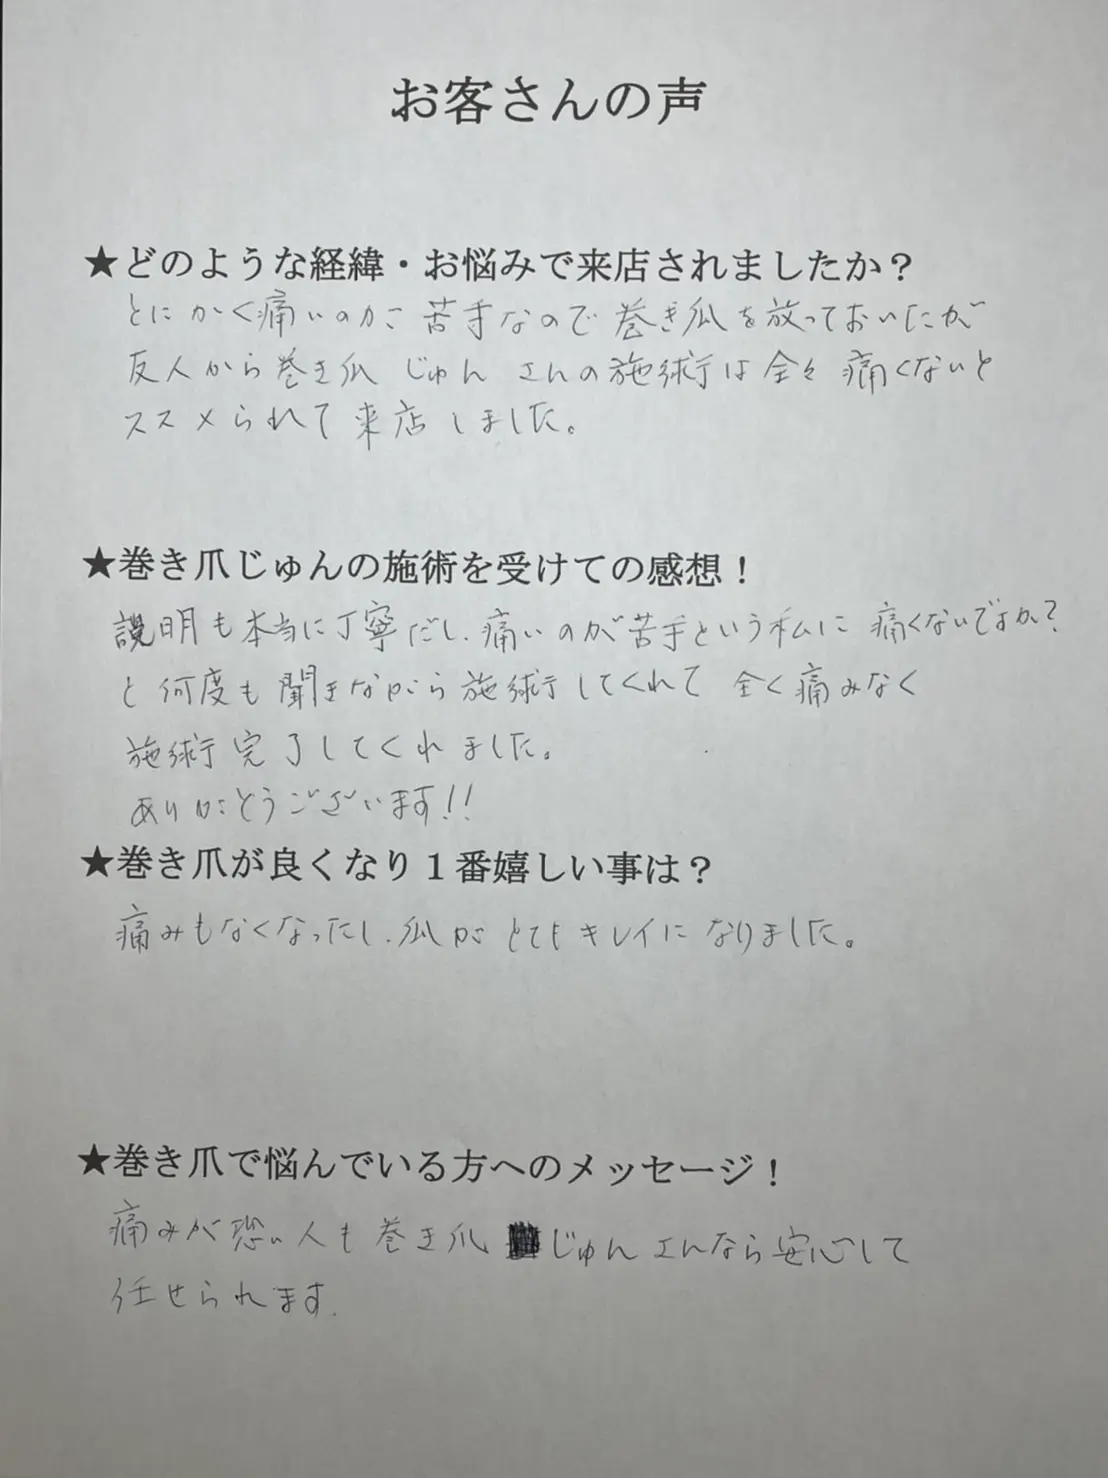 お客さんの声
★どのような経緯・お悩みで来店されましたか？
とにかく痛いのが苦手なので巻き爪を放っておいたが
友人から巻き爪じゅんさんの施術は全々痛くないと
ススメられて来店しました。
★巻き爪じゅんの施術を受けての感想！
説明も本当に丁寧だし、痛いのが苦手という私に痛くないですか？
と何度も聞きながら施術してくれて全く痛みなく
施術完了してくれました。
ありがとうございます!!
★巻き爪が良くなり１番嬉しい事は？
痛みもなくなったし、爪がとてもキレイになりました。
★巻き爪で悩んでいる方へのメッセージ！
痛みが恐い人も巻き爪じゅんさんなら安心して
任せられます.